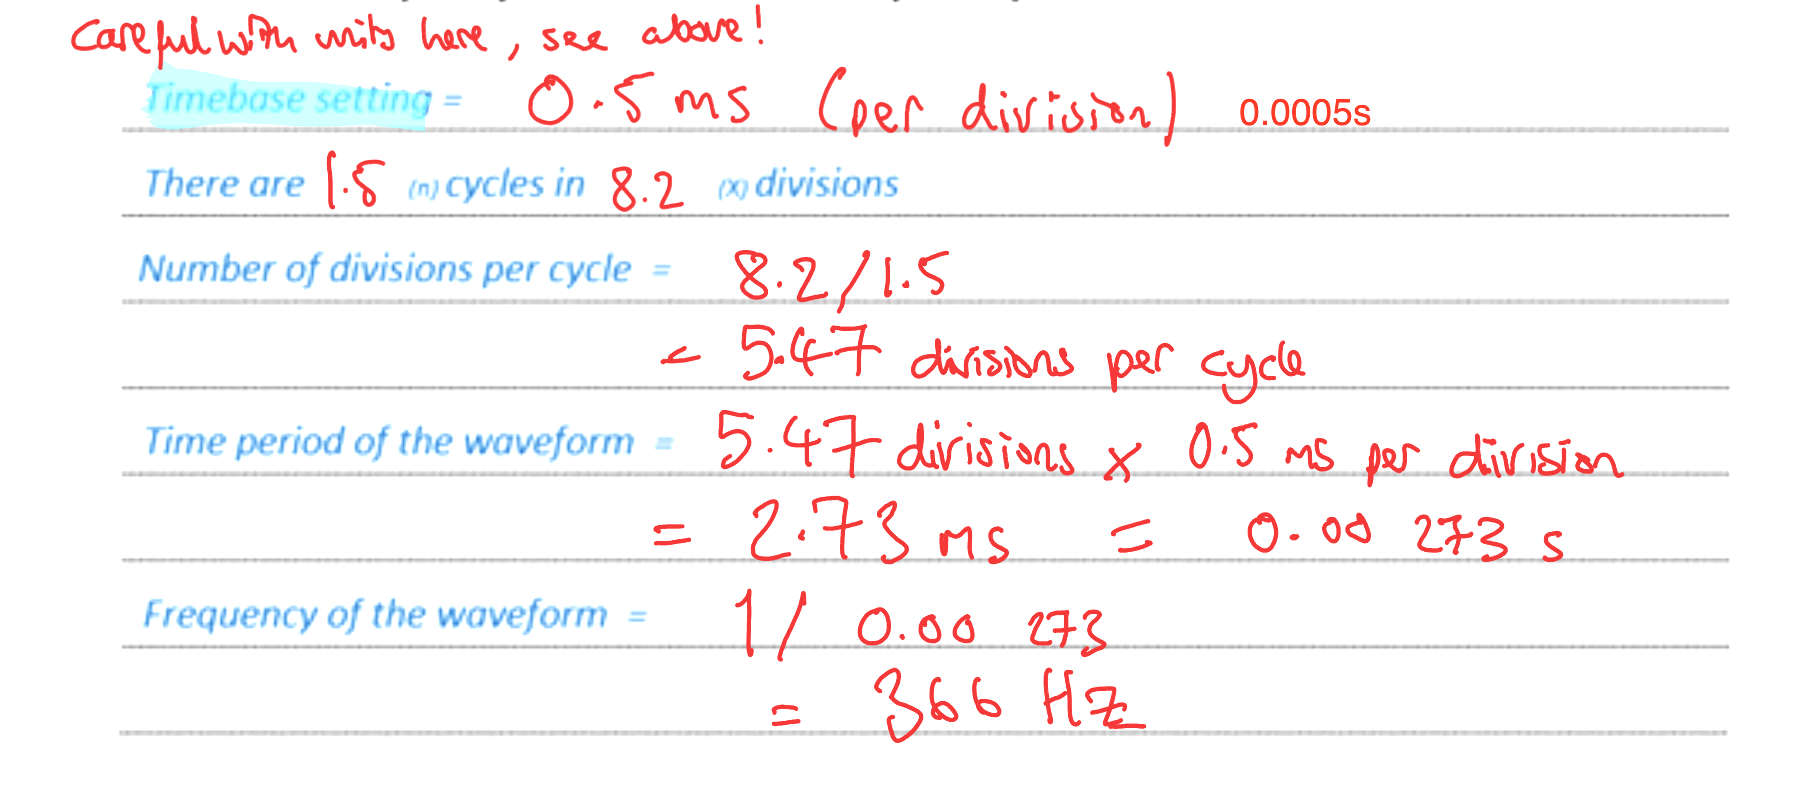 Careful with units here, see above!
Timebase setting = 0.5 ms (per division) 0.0005s
There are 1.5 (n) cycles in 8.2 (X) divisions
Number of divisions per cycle = 8.2/1.5
= 5.47 divisions per cycle
Time period of the waveform = 5.47 divisions x 0.5 ms per division
= 2.73 ms = 0.00 273 s
Frequency of the waveform = 1/ 0.00 273
= 366 Hz